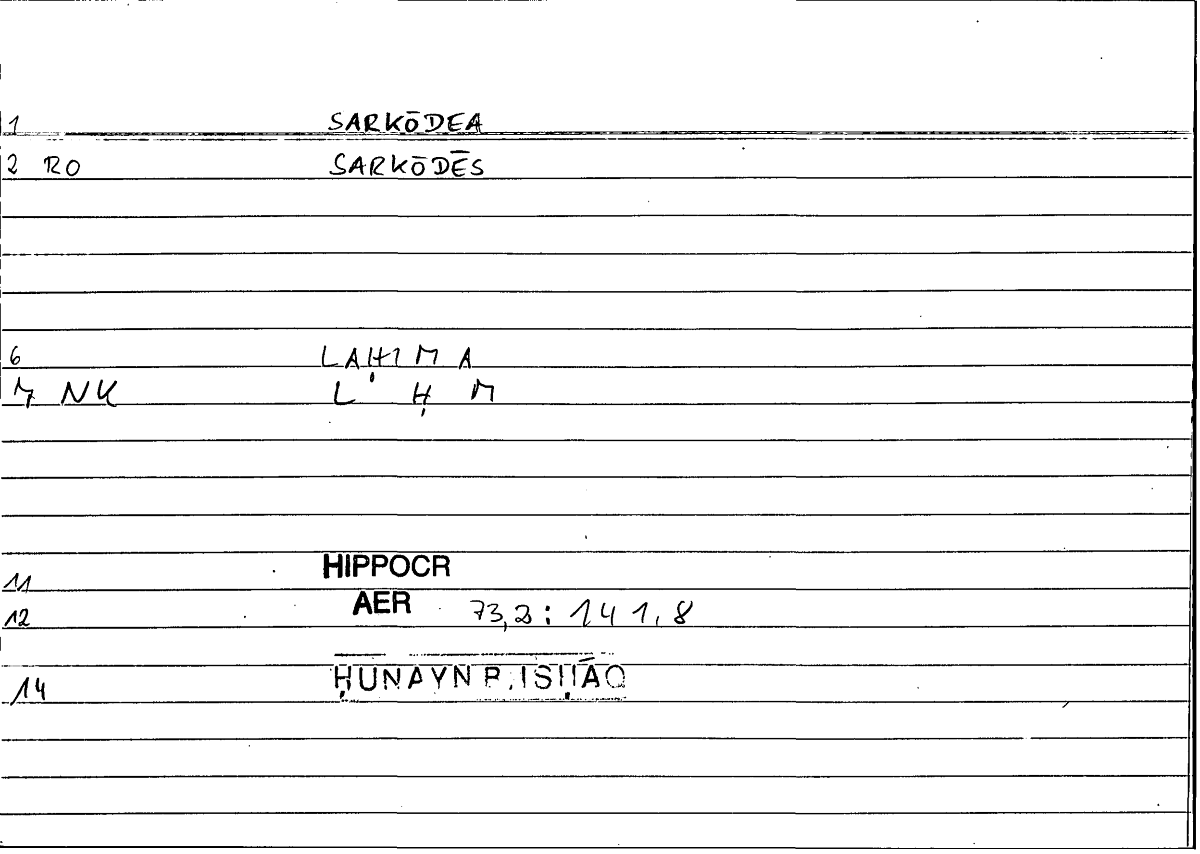 1 SARKŌDEA
2 RO SARKŌDĒS
6 LAḤIMA
7 NK L Ḥ M
11 HIPPOCR
12 AER 73,2 : 141,8
14 ḤUNAYN B. ISḤĀQ